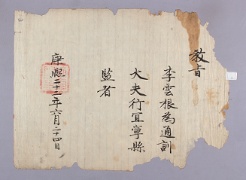 教旨
李雲根為通訓
大夫行宜寧縣
監者
康熙二十二年六月二十四日